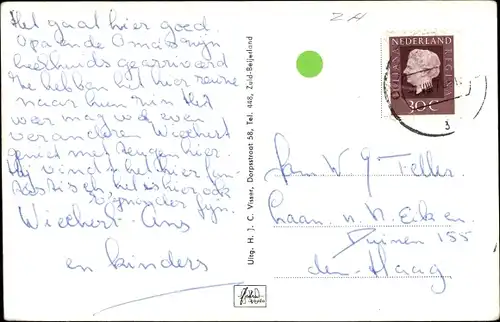 Het gaat hier goed.
Opa en de Oma's zijn
gearriveerd
Ze hebben het hier
naar hun zin. Het
weer mag wel even
veranderen. Wiechert
geniet met teugen hier.
Hij vind 't het hier fan-
tastisch, het is hier ook
bijzonder fijn.
Wiechert - Ans
en kinders
Uitg. H. J. C. Visser, Dorpsstraat 58, Tel. 448, Zuid-Beijerland
ZH
JULIANA
NEDERLAND
REGINA
30C
Fam W G Teller
Laan. n. N. Eik en
Duinen 155
den-Haag